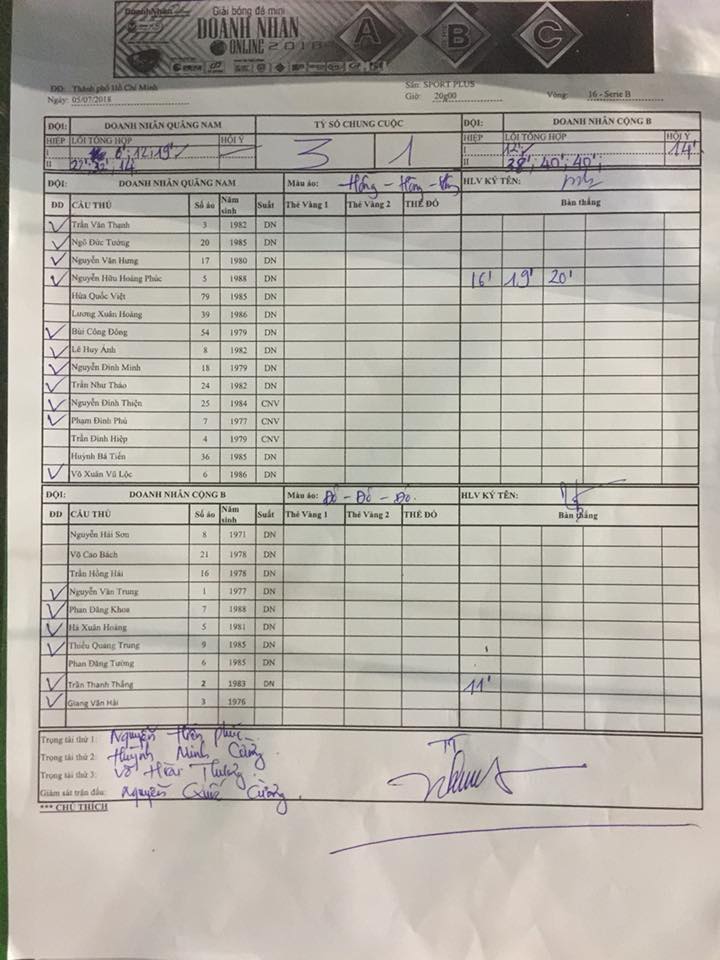 DoanhNhân
Giải bóng đá mini
DOANH NHÂN
ONLINE 2018
A
B
C
ĐĐ: Thành phố Hồ Chí Minh Sân: SPORT PLUS
Ngày: 05/07/2018 Giờ: 20g00 Vòng: 16 - Serie B
ĐỘI: DOANH NHÂN QUẢNG NAM TỶ SỐ CHUNG CUỘC ĐỘI: DOANH NHÂN CỘNG B
HIỆP LỖI TỔNG HỢP HỘI Ý 3 1 HIỆP LỖI TỔNG HỢP HỘI Ý
I 6'; 12; 19' I 12' 14'
II 27'; 32'; 14 II 38'; 40'; 40';
ĐỘI: DOANH NHÂN QUẢNG NAM Màu áo: Hồng - Hồng - HLV KÝ TÊN:
DD CẦU THỦ Số áo Năm sinh Suất Thẻ Vàng 1 Thẻ Vàng 2 THẺ ĐỎ Bàn thắng
Trần Văn Thạnh 3 1982 DN
Ngô Đức Tướng 20 1985 DN
Nguyễn Văn Hưng 17 1980 DN
Nguyễn Hữu Hoàng Phúc 5 1988 DN 16' 19' 20'
Hứa Quốc Việt 79 1985 DN
Lương Xuân Hoàng 39 1986 DN
Bùi Công Đông 54 1979 DN
Lê Huy Ánh 8 1982 DN
Nguyễn Đình Minh 18 1979 DN
Trần Như Thảo 24 1982 DN
Nguyễn Đình Thiện 25 1984 CNV
Phạm Đình Phú 7 1977 CNV
Trần Đình Hiệp 4 1979 CNV
Huỳnh Bá Tiến 36 1985 DN
Võ Xuân Vũ Lộc 6 1986 DN
ĐỘI: DOANH NHÂN CỘNG B Màu áo: Đỏ - Đỏ - Đỏ. HLV KÝ TÊN:
DD CẦU THỦ Số áo Năm sinh Suất Thẻ Vàng 1 Thẻ Vàng 2 THẺ ĐỎ Bàn thắng
Nguyễn Hải Sơn 8 1971 DN
Võ Cao Bách 21 1978 DN
Trần Hồng Hải 16 1978 DN
Nguyễn Văn Trung 1 1977 DN
Phan Đăng Khoa 7 1988 DN
Hà Xuân Hoàng 5 1981 DN
Thiều Quang Trung 9 1985 DN
Phan Đăng Tường 6 1985 DN
Trần Thanh Thắng 2 1983 DN 11'
Giang Văn Hải 3 1976
Trọng tài thứ 1: Nguyễn Hiền Phúc
Trọng tài thứ 2: Huỳnh Minh Cường
Trọng tài thứ 3: Võ
Giám sát trận đấu: Nguyễn Quốc Cường
*** CHÚ THÍCH